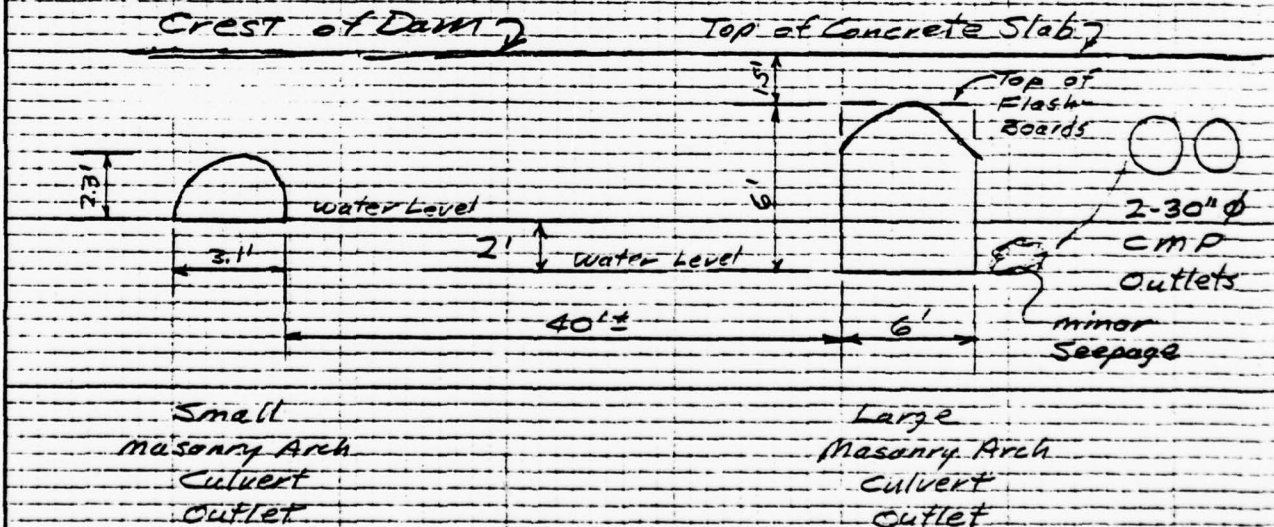 Crest of Dam
Top of Concrete Slab
1.5'
Top of
Flash
Boards
2.3'
water Level
6'
2-30" φ
CMP
Outlets
3.1'
2'
water Level
40'±
6'
minor
Seepage
Small
Masonry Arch
Culvert
Outlet
Large
Masonry Arch
Culvert
Outlet